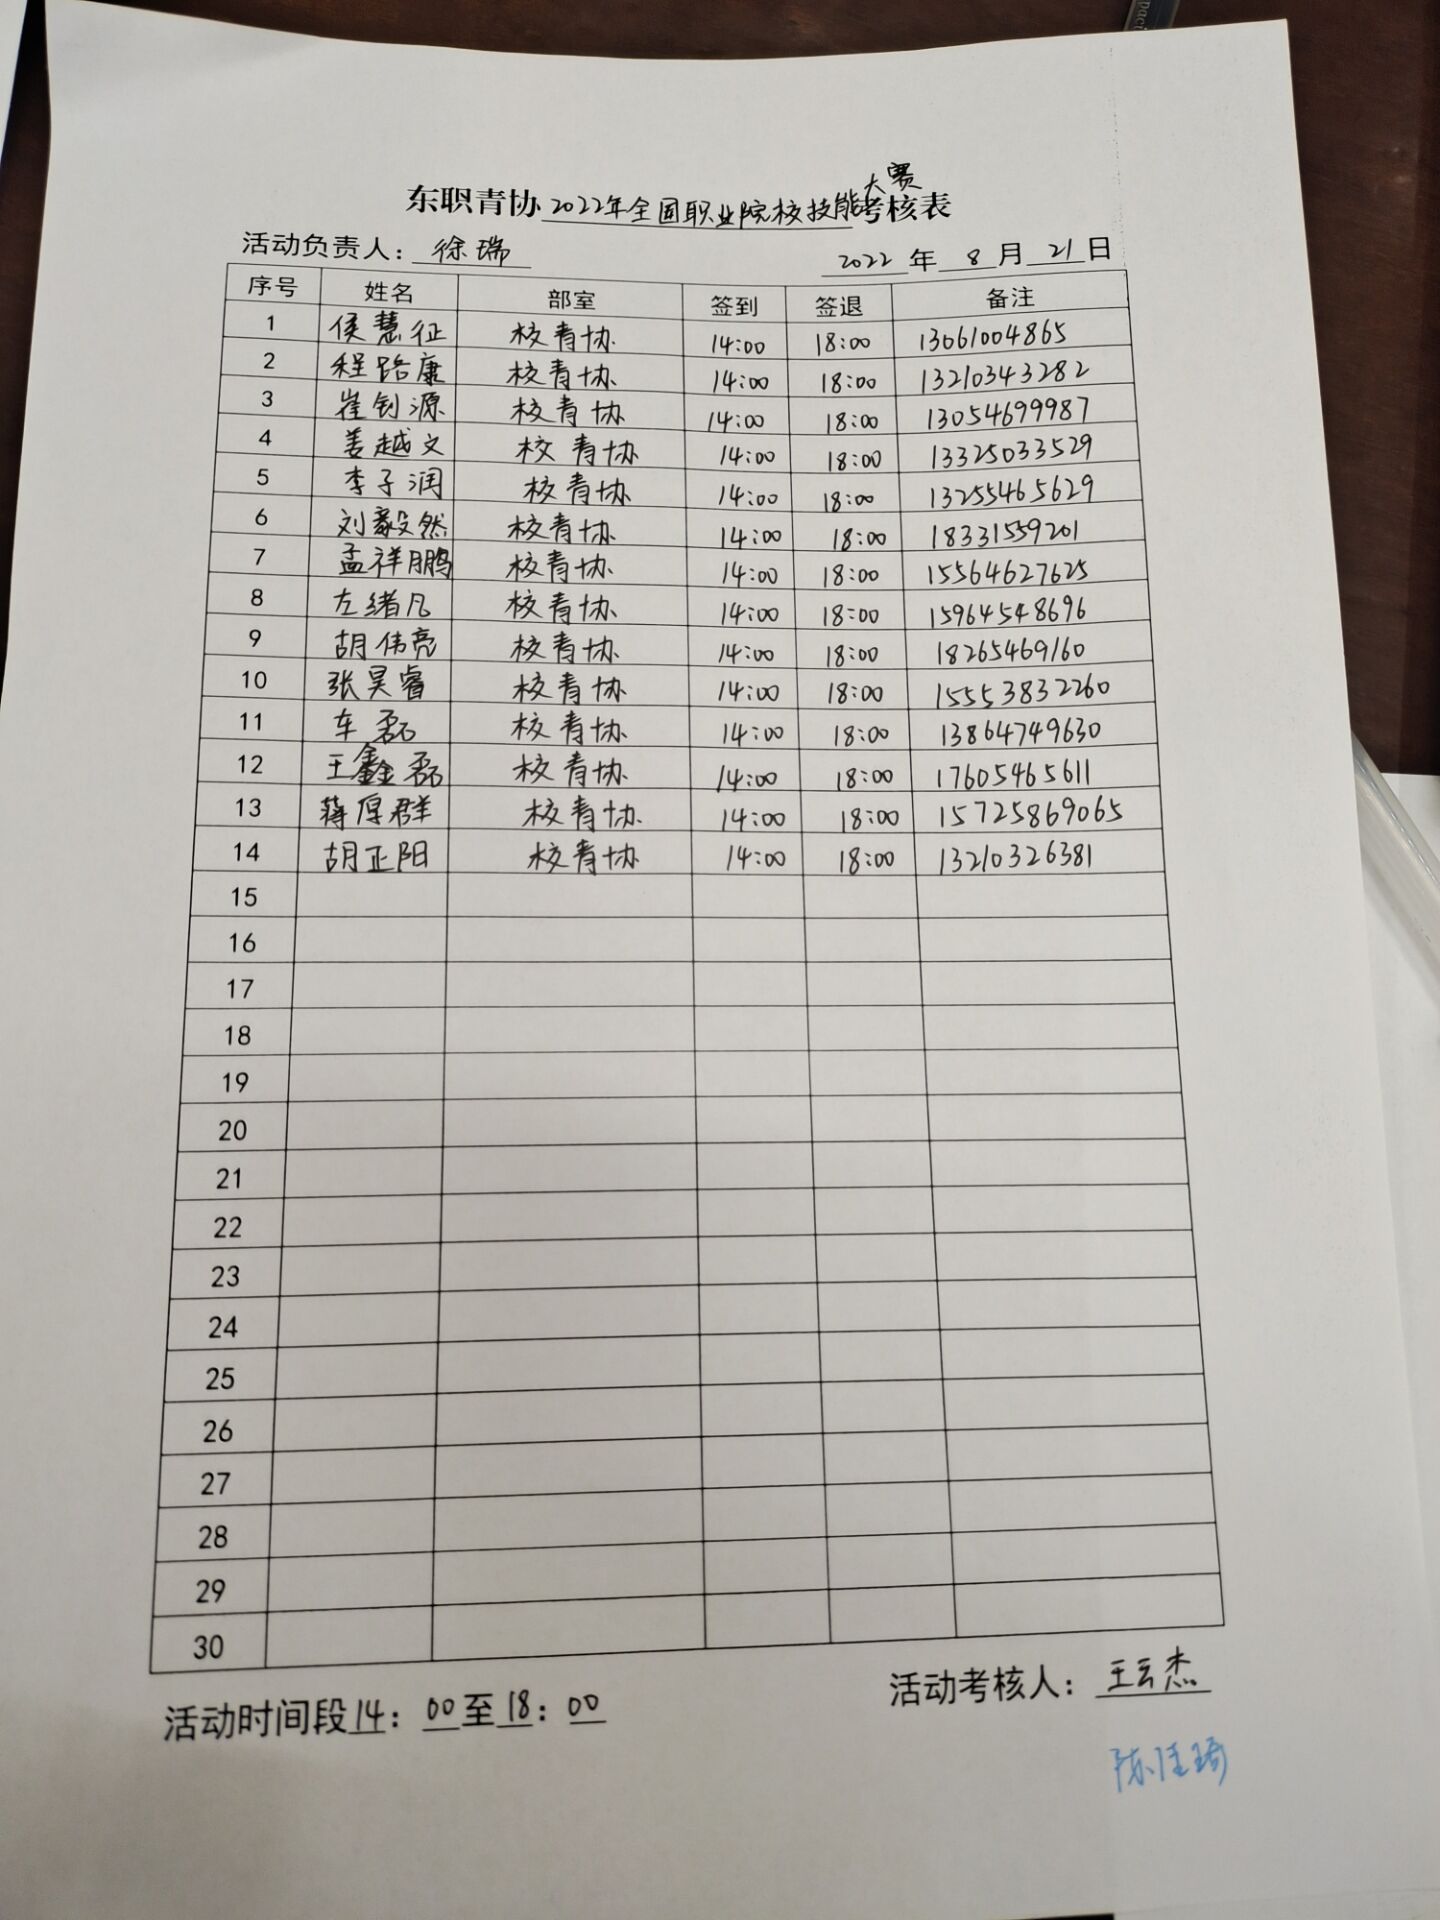 大赛
东职青协2022年全国职业院校技能考核表
活动负责人：徐瑞 2022年8月21日
序号 姓名 部室 签到 签退 备注
1 侯慧征 校青协 14:00 18:00 13061004865
2 程路康 校青协 14:00 18:00 13210343282
3 崔钊源 校青协 14:00 18:00 13054699987
4 姜越文 校青协 14:00 18:00 13325033529
5 李子润 校青协 14:00 18:00 13255465629
6 刘毅然 校青协 14:00 18:00 18331559201
7 孟祥鹏 校青协 14:00 18:00 15564627625
8 左绪凡 校青协 14:00 18:00 15964548696
9 胡伟亮 校青协 14:00 18:00 18265469160
10 张昊睿 校青协 14:00 18:00 15553832260
11 车磊 校青协 14:00 18:00 13864749630
12 王鑫磊 校青协 14:00 18:00 17605465611
13 蒋厚群 校青协 14:00 18:00 15725869065
14 胡正阳 校青协 14:00 18:00 13210326381
15
16
17
18
19
20
21
22
23
24
25
26
27
28
29
30
活动时间段14：00至18：00 活动考核人：王云杰
陈佳琦